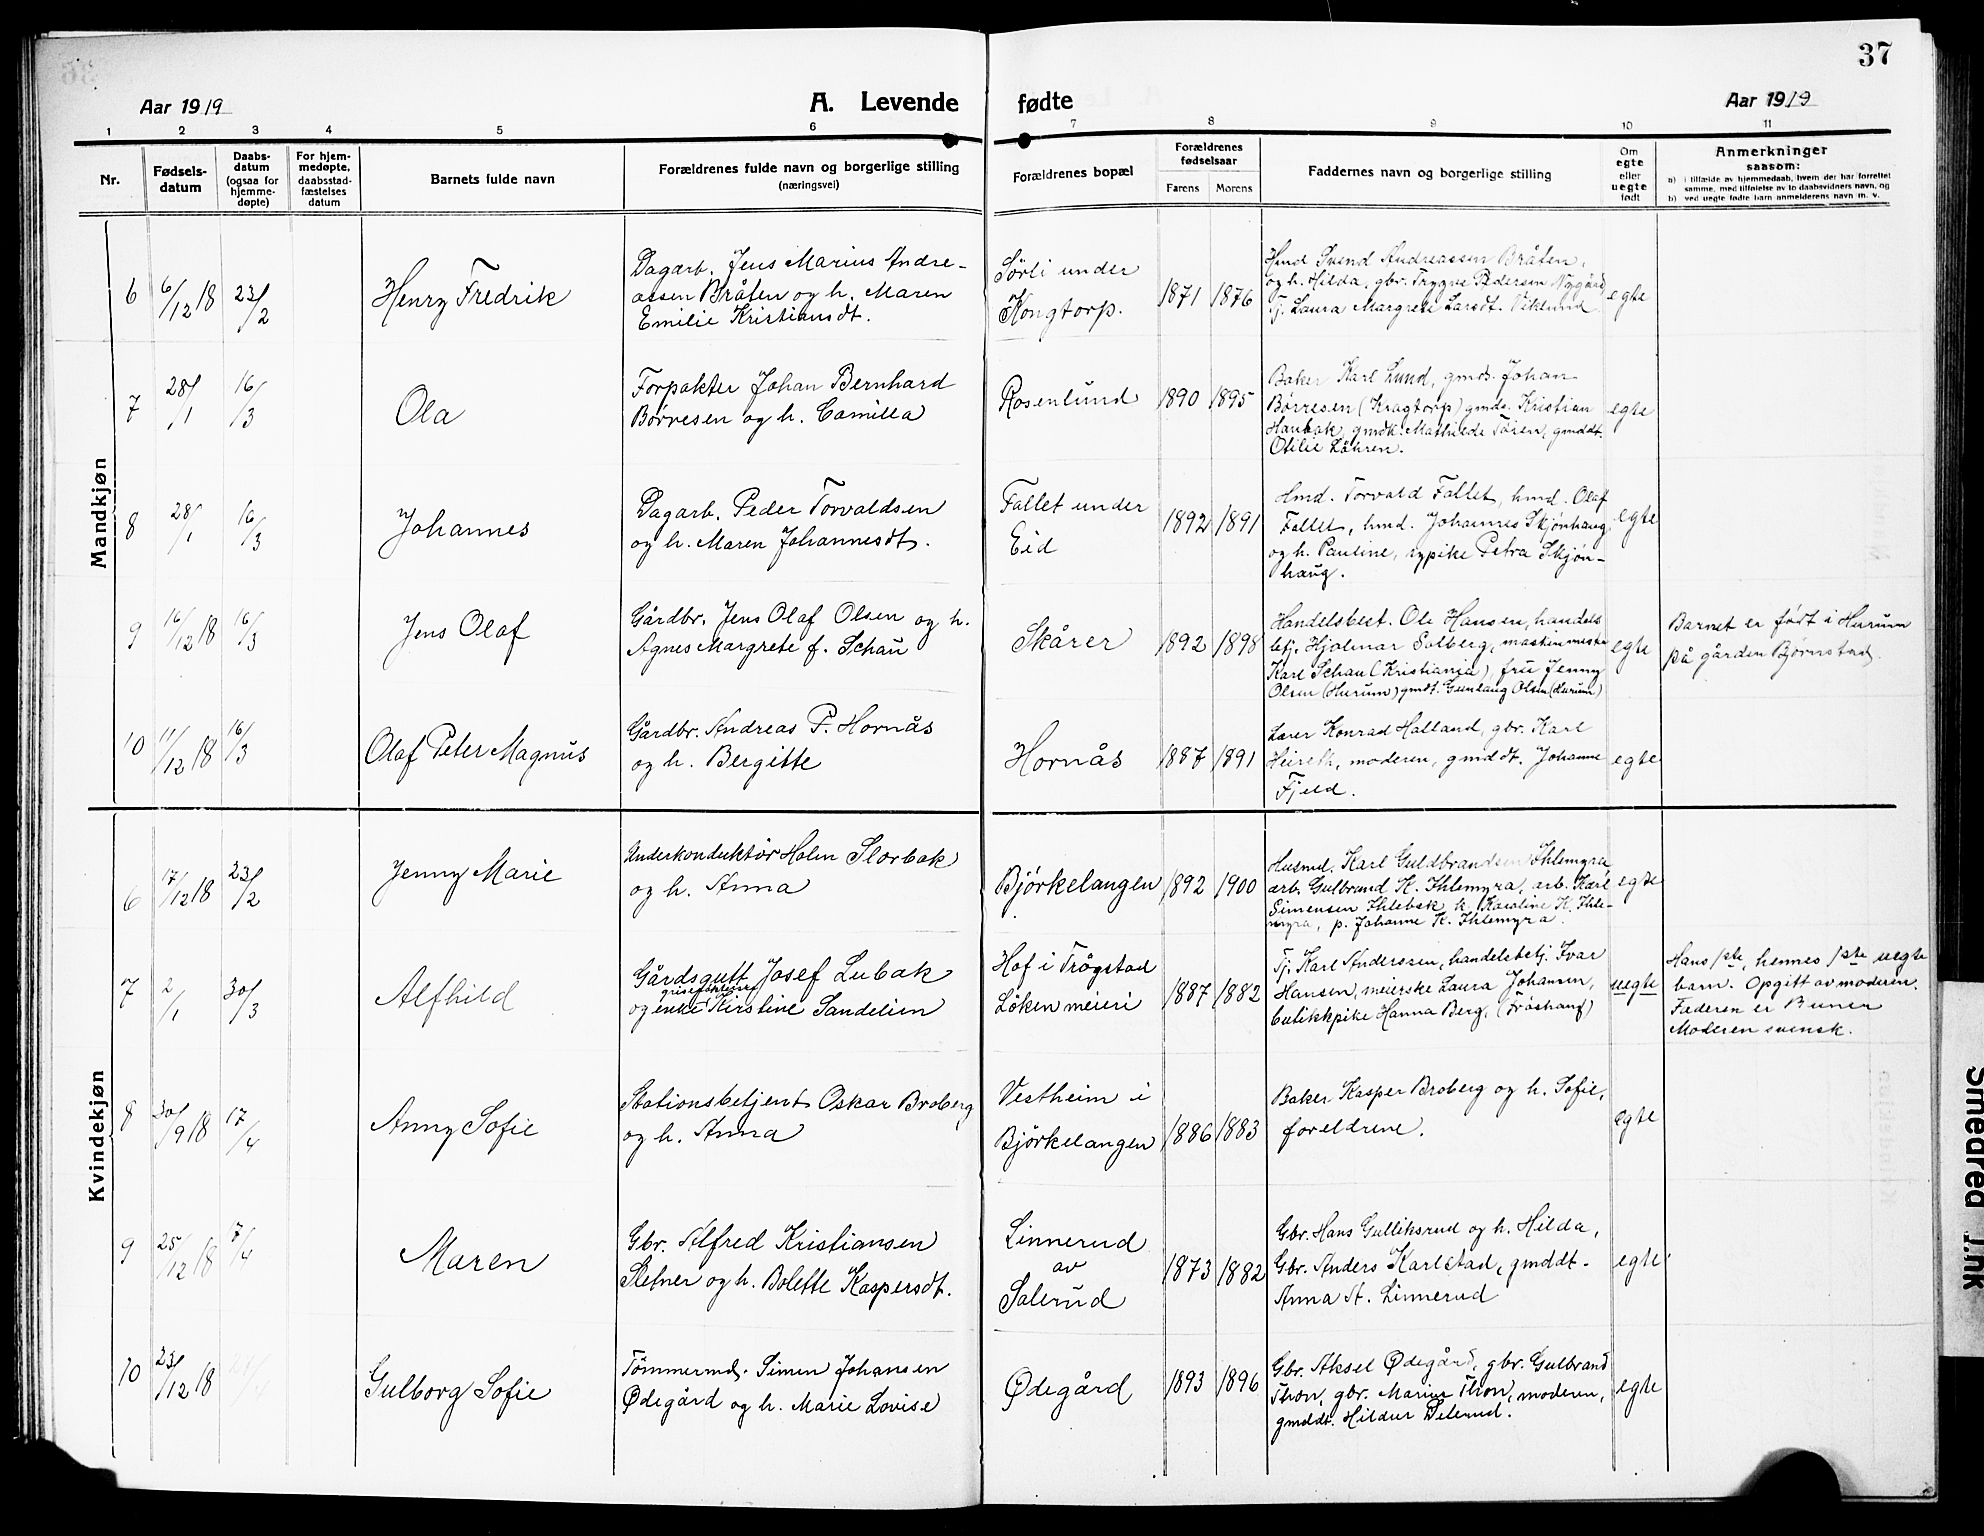 37
Aar 1919
A. Levende fødte
Aar 1919
1 2 3 4 5 6 7 8 9 10 11
Nr.
Fødsels-
datum
Daabs-
datum
(ogsaa for
hjemme-
døpte)
For hjem-
medøpte,
daabsstad-
fæstelses
datum
Barnets fulde navn
Forældrenes fulde navn og borgerlige stilling
(næringsvei)
Forældrenes bopæl
Forældrenes
fødselsaar
Farens
Morens
Faddernes navn og borgerlige stilling
Om
egte
eller
uegte
født
Anmerkninger
saasom:
a) i tilfælde av hjemmedaab, hvem der har forrettet
samme, med tilføielse av to daabsvidners navn, og
b) ved uegte fødte barn anmelderens navn m. v.
Mandkjøn
6
6/12 18
23/2
Henry Fredrik
Dagarb. Jens Marius Andre-
assen Bråten og h. Maren
Emilie Kristiansdt.
Sørli under
Kongtorp.
1871
1876
Hmd Svend Andreassen Bråten,
og h. Hilda, gbr. Trygve Pedersen Nygård
Tj. Laura Margrete Larsdt. Viklund
egte
7
28/1
16/3
Ola
Forpakter Johan Bernhard
Børresen og h. Camilla
Rosenlund
1890
1895
Baker Karl Lund, gmds. Johan
Børresen (Kragtorp) gmds. Kristian
Haubak, gmdk. Mathilde Tøien, gmddt.
Otilie Løhren.
egte
8
28/1
16/3
Johannes
Dagarb. Peder Torvaldsen
og h. Maren Johannesdt.
Fallet under
Eid
1892
1891
Hmd. Torvald Fallet, hmd. Olaf
Fallet, hmd. Johannes Skjønhaug
og h. Pauline, sypike Petra Skjøn-
haug.
egte
9
16/12 18
16/3
Jens Olaf
Gårdbr. Jens Olaf Olsen og h.
Agnes Margrete f. Schau
Skårer
1892
1898
Handelsbest. Ole Hansen, handels
betj. Hjalmar Solberg, maskinmester
Karl Schau (Kristiania), fru Jenny
Olsen (Hurum) gmdt. Gunlaug Olsen (Hurum)
egte
Barnet er født i Hurum
på gården Bjørnstad.
10
11/12 18
16/3
Olaf Peter Magnus
Gårdbr. Andreas P. Hornås
og h. Bergitte
Hornås
1887
1891
Lærer Konrad Halland, gbr. Karl
Heireth, moderen, gmddt. Johanne
Fjeld.
egte
Kvindekjøn
6
17/12 18
23/2
Jenny Marie
Underkonduktør Holm Slorbak
og h. Anna
Bjørkelangen
1892
1900
Husmd. Karl Guldbrandsen Ihlemyra,
arb. Gulbrand K. Ihlemyra, arb. Karl
Simensen Ihlebæk k. Karoline K. Ihle-
myra, p. Johanne K. Ihlemyra.
egte
7
2/1
30/3
Alfhild
Gårdsgutt Josef Lubak
og enke Kirstine Sandelien
Hof i Trøgstad
Løken meieri
1887
1882
Tj. Karl Anderssen, handelsbetj. Ivar
Hansen, meierske Laura Johansen,
butikkpike Hanna Berg,
uegte
Hans 1ste, hennes 1ste uegte
barn. Opgitt av moderen.
Faderen er
Moderen svensk.
8
30/9 18
17/4
Anny Sofie
Stationsbetjent Oskar Broberg
og h. Anna
Vestheim i
Bjørkelangen
1886
1883
Baker Kasper Broberg og h. Sofie,
foreldrene.
egte
9
25/12 18
7/4
Maren
Gbr. Alfred Kristiansen
Stefner og h. Bolette Kaspersdt.
Linnerud
av
Salerud
1873
1882
Gbr. Hans Gulliksrud og h. Hilda,
Gbr. Anders Karlstad, gmddt.
Anna A. Linnerud
egte
10
23/12 18
Gulborg Sofie
Tømmermd. Simen Johansen
Ødegård og h. Marie Lovise
Ødegård
1893
1896
Gbr. Aksel Ødegård, gbr. Gulbrand
Thon, gbr. Marius Thon, moderen,
gmddt. Hildur
egte
Smeared Ink